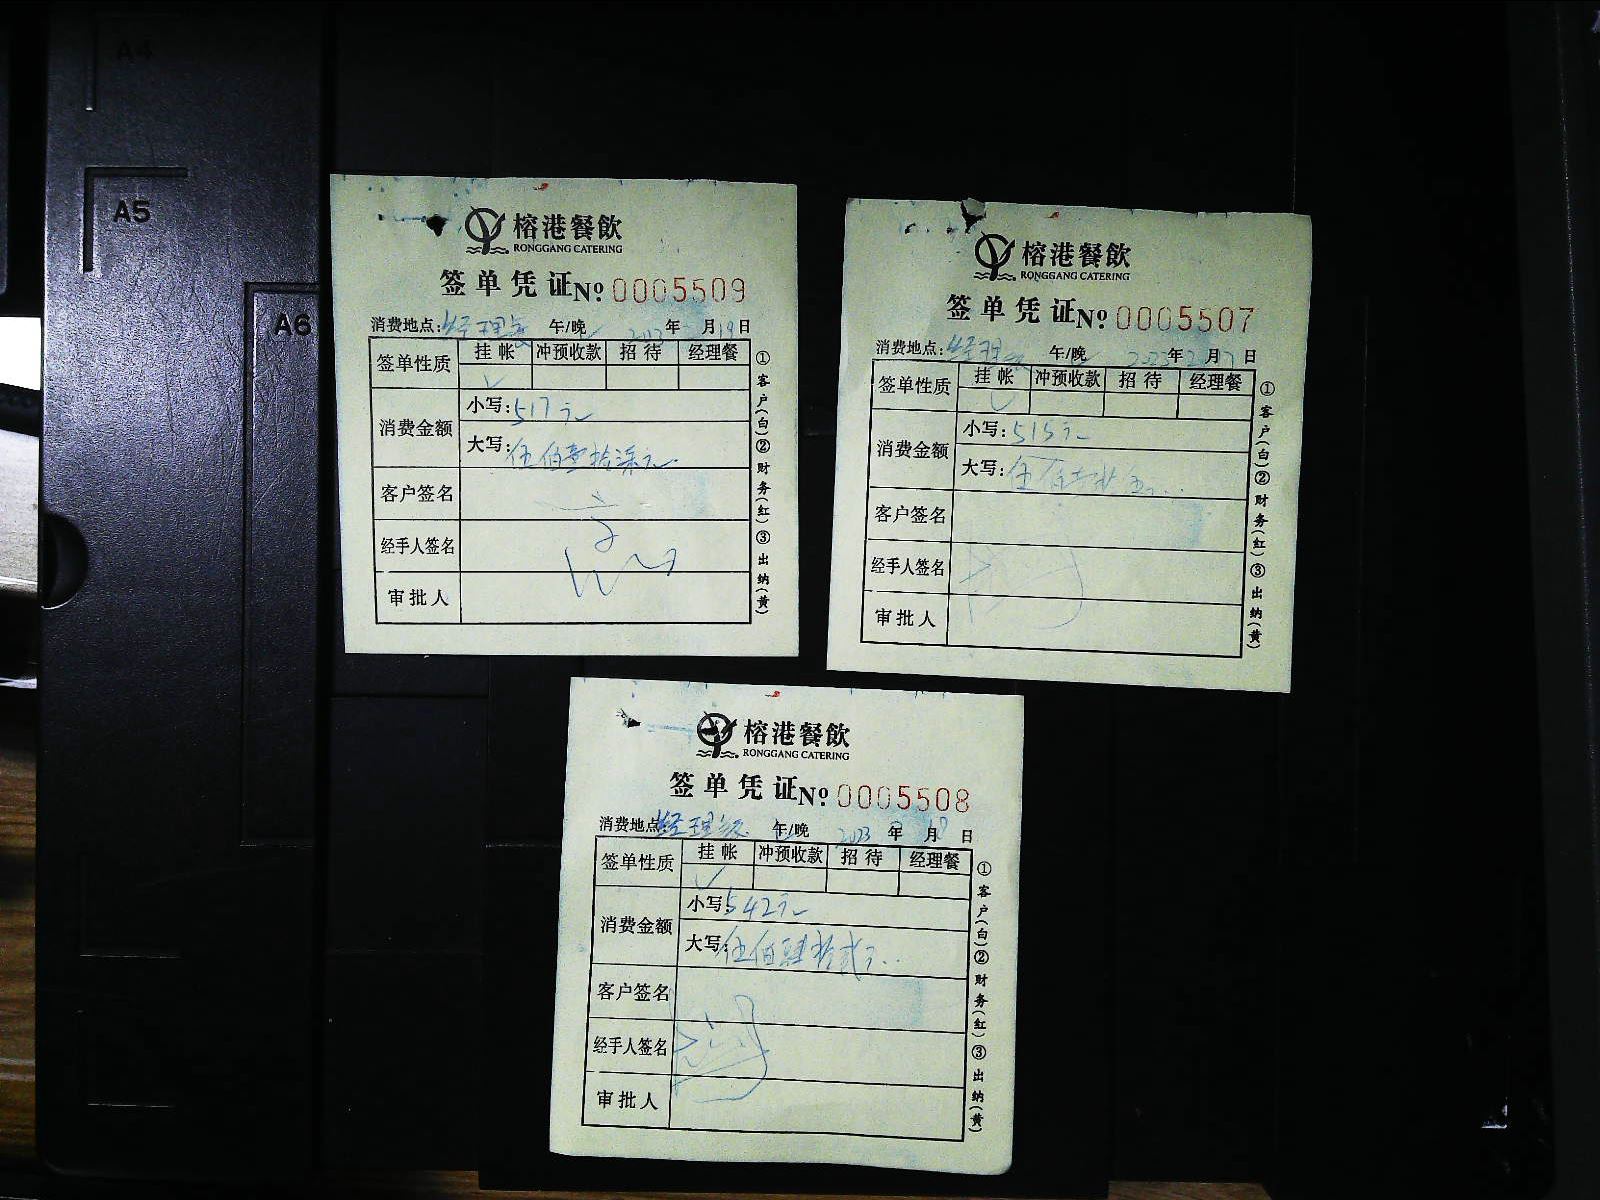 A4
A5
A6
榕港餐飲
RONGGANG CATERING
签单凭证№ 0005509
消费地点:经理餐 午/晚 年 月19日
签单性质 挂帐 冲预收款 招待 经理餐
✓
消费金额 小写:517元
大写:伍佰壹拾柒元
客户签名
经手人签名
审批人
①客户(白)②财务(红)③出纳(黄)
榕港餐飲
RONGGANG CATERING
签单凭证№ 0005507
消费地点:经理餐 午/晚 2023年2月17日
签单性质 挂帐 冲预收款 招待 经理餐
✓
消费金额 小写:515元
大写:伍佰
客户签名
经手人签名
审批人
①客户(白)②财务(红)③出纳(黄)
榕港餐飲
RONGGANG CATERING
签单凭证№ 0005508
消费地点:经理餐 午/晚 2023年 月18日
签单性质 挂帐 冲预收款 招待 经理餐
✓
消费金额 小写:542元
大写:伍佰肆拾贰元
客户签名
经手人签名
审批人
①客户(白)②财务(红)③出纳(黄)